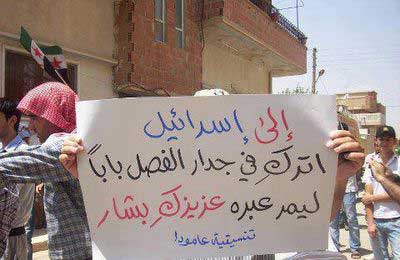 إلى إسرائيل
اتركِ في جدار الفصل باباً
ليمر عبره عزيزكِ بشار
تنسيقية عامودا